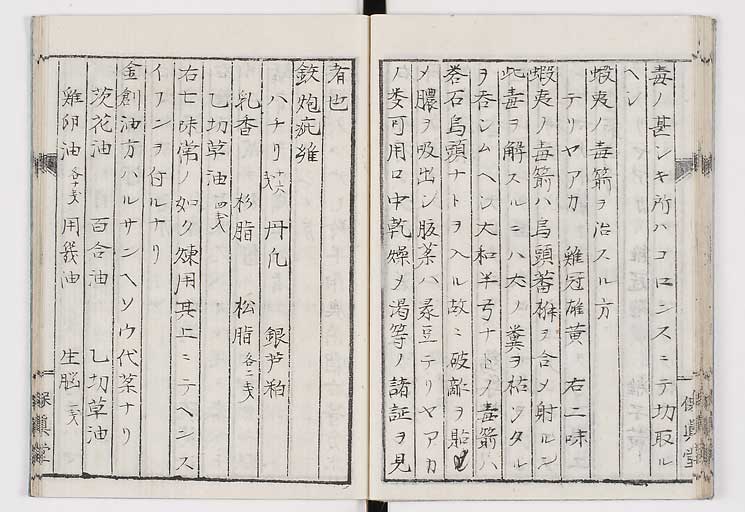 毒ノ甚シキ所ハコロンスニテ切取ル
ヘシ
蝦夷ノ毒箭ヲ治スル方
テリヤアカ 雞冠雄黄 右二味
蝦夷ノ毒箭ハ烏頭蕃椒ヲ合メ射ルン
此毒ヲ解スルニハ犬ノ糞ヲ枯シタル
ヲ呑シムヘシ大和半弓ナトノ毒箭ハ
礜石烏頭ナトヲ入ル故ニ破敵ヲ貼
メ膿ヲ吸出シ服薬ハ菉豆テリヤアカ
ノ類可用口中乾燥メ渇等ノ諸証ヲ見
者也
鉄炮疵維
ハナリ 十六戔 丹凡 銀芦粕
乳香 杉脂 松脂 各二戔
乙切草油 四戔
右七味常ノ如ク煉用其上ニテヘンス
イタシヲ付ルナリ
金創油方ハルサンヘソウ代薬ナリ
茨花油 百合油 乙切草油
雞卵油 各十戔 用幾油 生脳 二戔